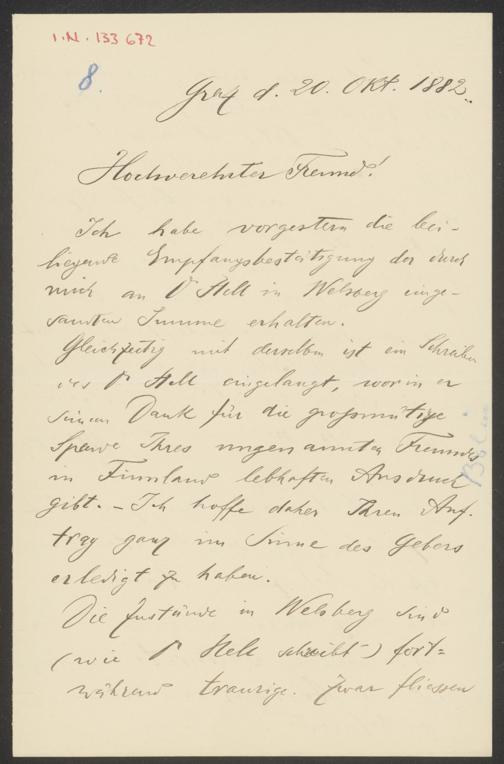 I.N. 133 672
8.
Graz d. 20. Okt. 1882.
Hochverehrter Freund!
Ich habe vorgestern die bei-
liegende Empfangsbestätigung der durch
mich an Dr Hell in Welsberg einge-
sandten Summe erhalten.
Gleichzeitig mit derselben ist ein Schreiben
des Dr Hell eingelangt, worin er
seinen Dank für die grossmütige
Spende Ihres ungenannten Freundes
in Finnland lebhaften Ausdruck
gibt. – Ich hoffe daher Ihren Auf-
trag ganz im Sinne des Gebers
erledigt zu haben.
Die Zustände in Welsberg sind
(wie Dr Hell schreibt) fort=
während traurige. Zwar fliessen